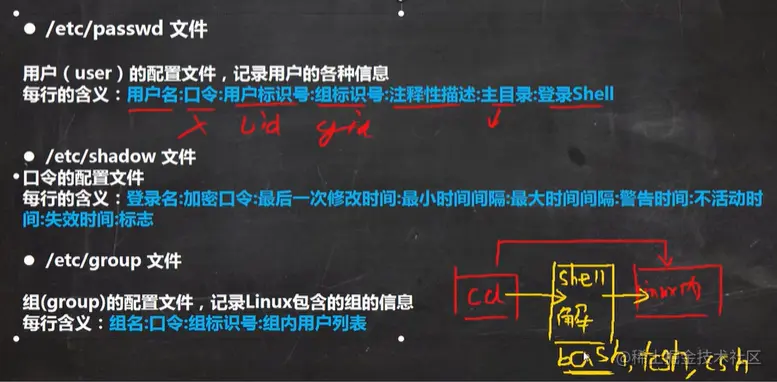 ● /etc/passwd 文件
用户（user）的配置文件，记录用户的各种信息
每行的含义：用户名:口令:用户标识号:组标识号:注释性描述:主目录:登录Shell
X uid gid
● /etc/shadow 文件
口令的配置文件
每行的含义：登录名:加密口令:最后一次修改时间:最小时间间隔:最大时间间隔:警告时间:不活动时
间:失效时间:标志
● /etc/group 文件
组(group)的配置文件，记录Linux包含的组的信息
每行含义：组名:口令:组标识号:组内用户列表
cd
shell
解
bash, tcsh, csh
@稀土掘金技术社区